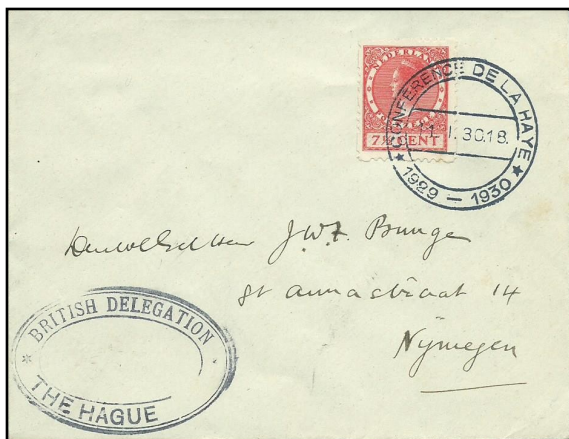 NEDERLAND
7½ CENT
CONFERENCE DE LA HAYE
I. 30.18.
★ 1929 — 1930 ★
J.W.F. Bunge
St Annastraat 14
Nÿmegen
BRITISH DELEGATION
THE HAGUE